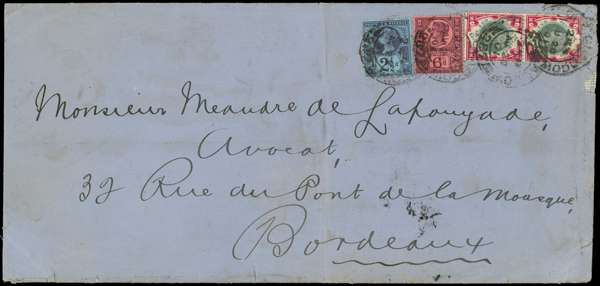 Monsieur Meaudre de Lapouyade,
Avocat,
32 Rue du Pont de la Mousque,
Bordeaux
2½d
6d